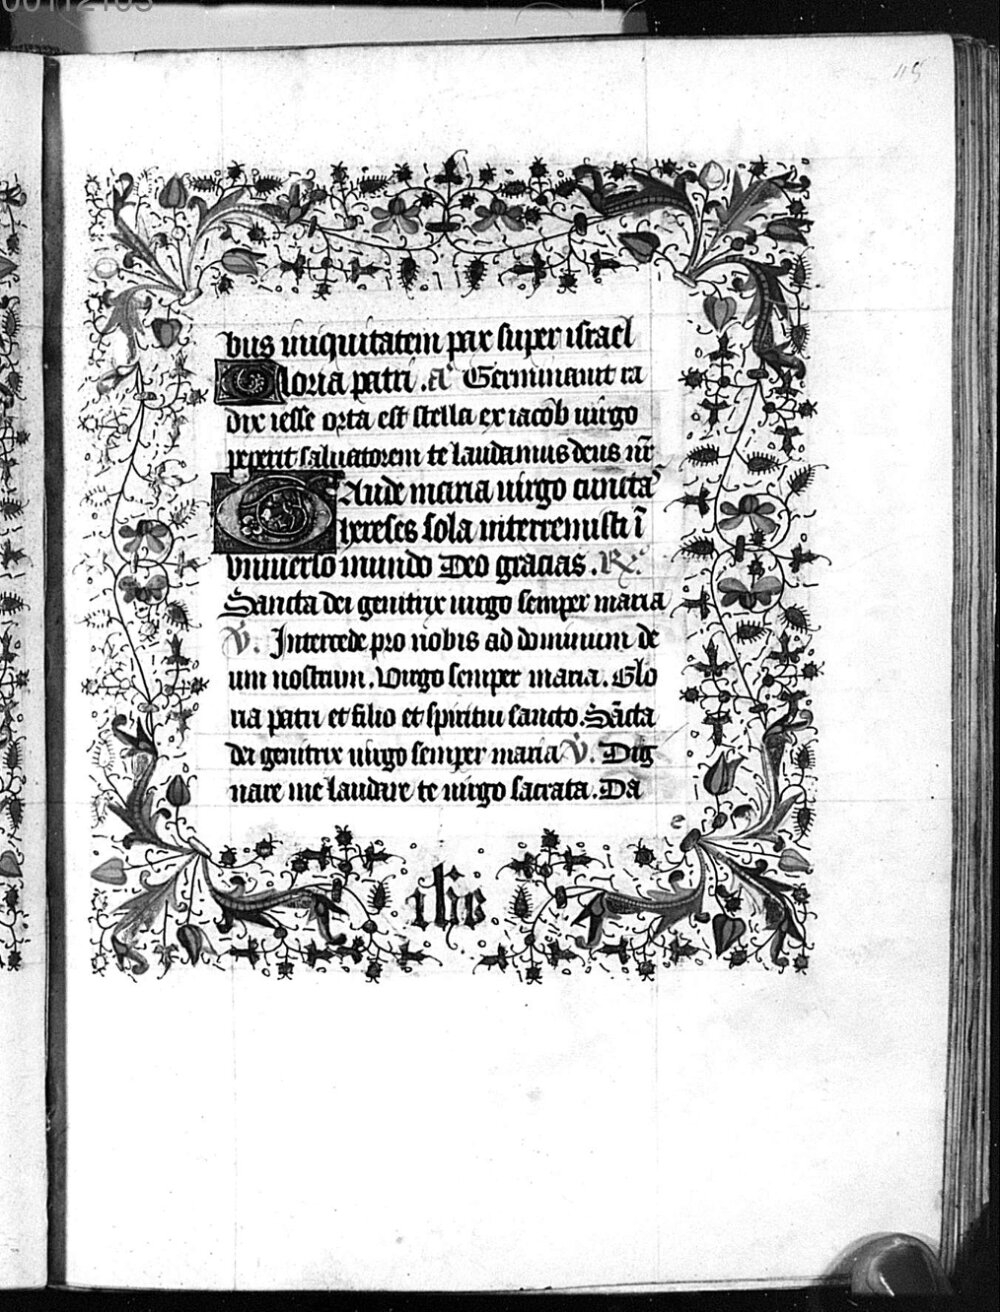 00112103
115
bus iniquitatem pax super israel
Gloria patri . a̅ Germinauit ra
dix iesse orta est stella ex iacob uirgo
peperit saluatorem te laudamus deus nr̄
Gaude maria uirgo cunctas
hereses sola interremisti ī
vniuerso mundo Deo gracias . R̷.
Sancta dei genitrix uirgo semper maria
V̷. Intercede pro nobis ad dominum de
um nostrum . Uirgo semper maria . Glo
ria patri et filio et spiritui sancto . Sācta
dei genitrix uirgo semper maria V̷. Dig
nare me laudare te uirgo sacrata . Da